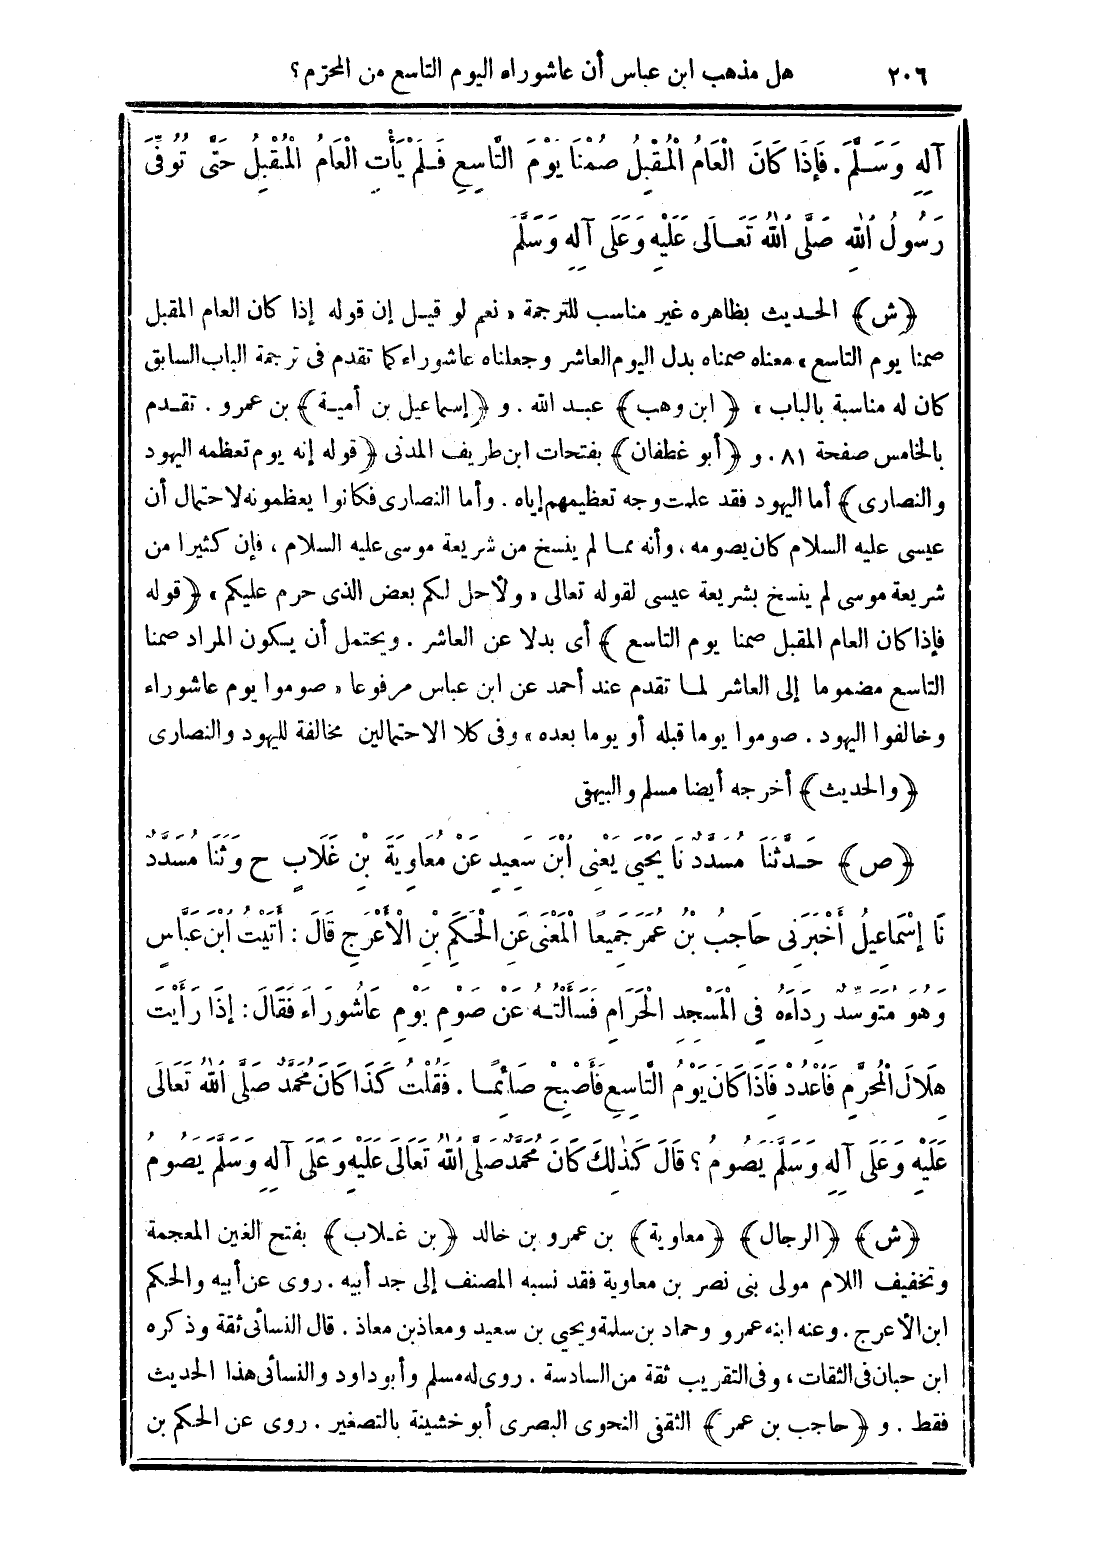 ٢٠٦ هل مذهب ابن عباس أن عاشوراء اليوم التاسع من المحرّم؟
آلِهِ وَسَلَّمَ. فَإِذَا كَانَ الْعَامُ الْمُقْبِلُ صُمْنَا يَوْمَ التَّاسِعِ فَلَمْ يَأْتِ الْعَامُ الْمُقْبِلُ حَتَّى تُوُفِّىَ
رَسُولُ اللهِ صَلَّى اللهُ تَعَالَى عَلَيْهِ وَعَلَى آلِهِ وَسَلَّمَ
﴿ش﴾ الحديث بظاهره غير مناسب للترجمة «نعم لو قيل إن قوله إذا كان العام المقبل
صمنا يوم التاسع» معناه صمناه بدل اليوم العاشر وجعلناه عاشوراء كما تقدم فى ترجمة الباب السابق
كان له مناسبة بالباب» ﴿ابن وهب﴾ عبد الله. و ﴿إسماعيل بن أمية﴾ بن عمرو. تقدم
بالخامس صفحة ٨١. و ﴿أبو غطفان﴾ بفتحات ابن طريف المدنى ﴿قوله إنه يوم تعظمه اليهود
والنصارى﴾ أما اليهود فقد علمت وجه تعظيمهم إياه. وأما النصارى فكانوا يعظمونه لاحتمال أن
عيسى عليه السلام كان يصومه، وأنه مما لم ينسخ من شريعة موسى عليه السلام، فإن كثيرا من
شريعة موسى لم ينسخ بشريعة عيسى لقوله تعالى «ولأحل لكم بعض الذى حرم عليكم» ﴿قوله
فإذا كان العام المقبل صمنا يوم التاسع﴾ أى بدلا عن العاشر. ويحتمل أن يكون المراد صمنا
التاسع مضموما إلى العاشر لما تقدم عند أحمد عن ابن عباس مرفوعا «صوموا يوم عاشوراء
وخالفوا اليهود. صوموا يوما قبله أو يوما بعده» وفى كلا الاحتمالين مخالفة لليهود والنصارى
﴿والحديث﴾ أخرجه أيضا مسلم والبيهقى
﴿ص﴾ حَدَّثَنَا مُسَدَّدٌ نَا يَحْيَى يَعْنِى ابْنَ سَعِيدٍ عَنْ مُعَاوِيَةَ بْنِ غَلَابٍ ح وَثَنَا مُسَدَّدٌ
نَا إِسْمَاعِيلُ أَخْبَرَنِى حَاجِبُ بْنُ عُمَرَ جَمِيعًا الْمَعْنَى عَنِ الْحَكَمِ بْنِ الْأَعْرَجِ قَالَ: أَتَيْتُ ابْنَ عَبَّاسٍ
وَهُوَ مُتَوَسِّدٌ رِدَاءَهُ فِى الْمَسْجِدِ الْحَرَامِ فَسَأَلْتُهُ عَنْ صَوْمِ يَوْمِ عَاشُورَاءَ فَقَالَ: إِذَا رَأَيْتَ
هِلَالَ الْمُحَرَّمِ فَاعْدُدْ فَإِذَا كَانَ يَوْمُ التَّاسِعِ فَأَصْبِحْ صَائِمًا. فَقُلْتُ كَذَا كَانَ مُحَمَّدٌ صَلَّى اللهُ تَعَالَى
عَلَيْهِ وَعَلَى آلِهِ وَسَلَّمَ يَصُومُ؟ قَالَ كَذٰلِكَ كَانَ مُحَمَّدٌ صَلَّى اللهُ تَعَالَى عَلَيْهِ وَعَلَى آلِهِ وَسَلَّمَ يَصُومُ
﴿ش﴾ ﴿الرجال﴾ ﴿معاوية﴾ بن عمرو بن خالد ﴿بن غلاب﴾ بفتح الغين المعجمة
وتخفيف اللام مولى بنى نصر بن معاوية فقد نسبه المصنف إلى جد أبيه. روى عن أبيه والحكم
ابن الأعرج. وعنه ابنه عمرو وحماد بن سلمة ويحيى بن سعيد ومعاذ بن معاذ. قال النسائى ثقة وذكره
ابن حبان فى الثقات، وفى التقريب ثقة من السادسة. روى له مسلم وأبو داود والنسائى هذا الحديث
فقط. و ﴿حاجب بن عمر﴾ الثقفى النحوى البصرى أبو خشينة بالتصغير. روى عن الحكم بن